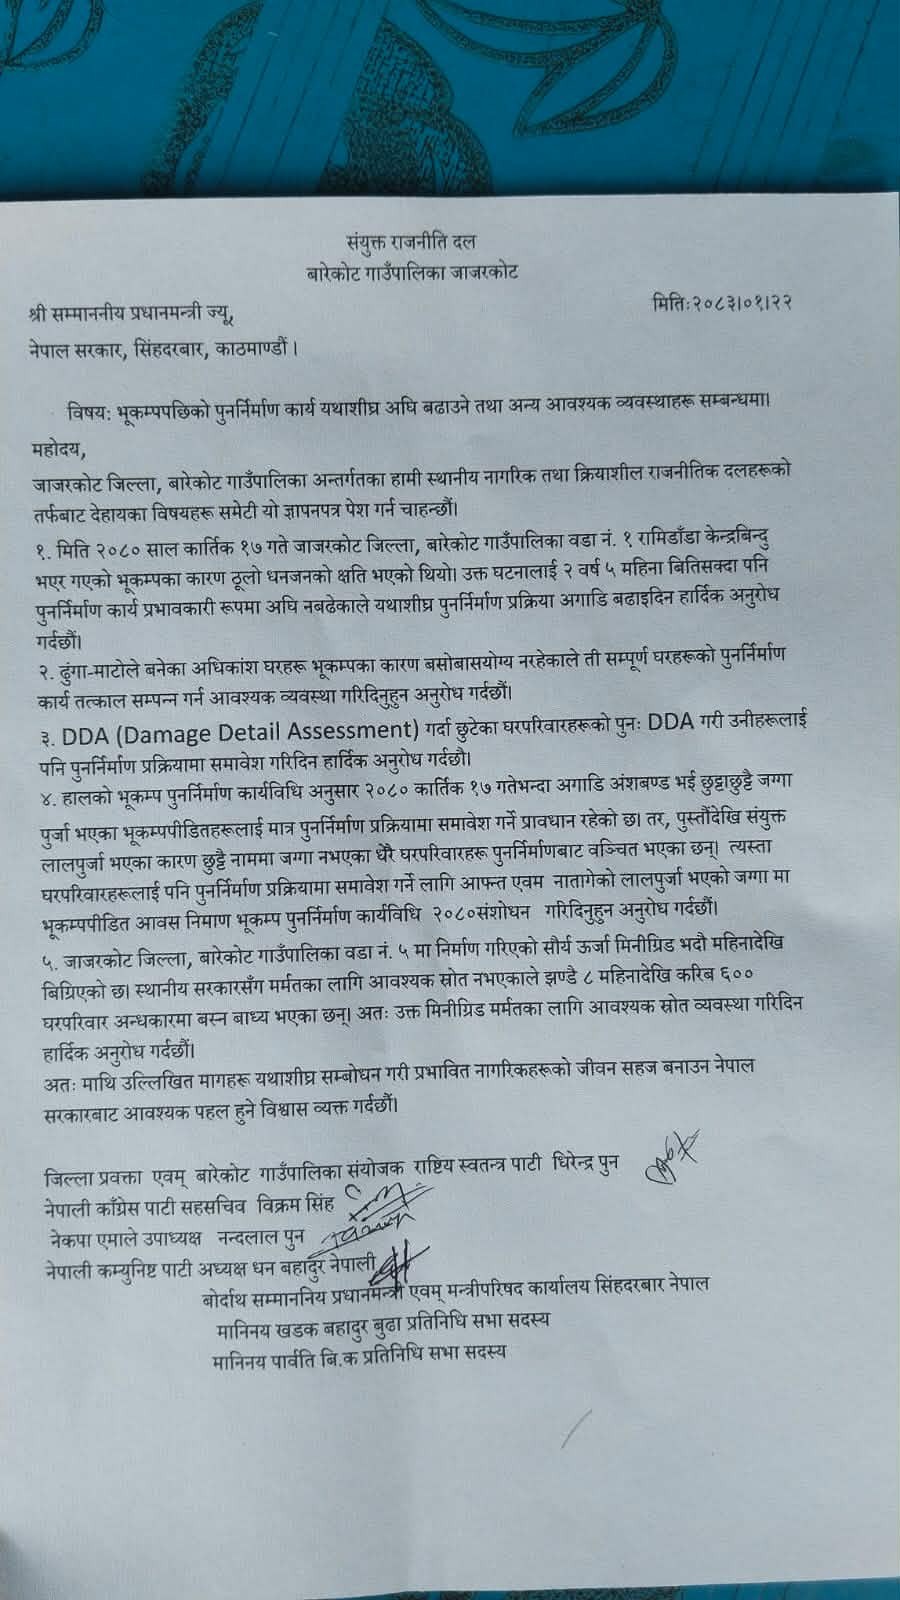 संयुक्त राजनीति दल
बारेकोट गाउँपालिका जाजरकोट
मितिः२०८३।०१।२२
श्री सम्माननीय प्रधानमन्त्री ज्यू,
नेपाल सरकार, सिंहदरबार, काठमाण्डौं ।
विषय: भूकम्पपछिको पुनर्निर्माण कार्य यथाशीघ्र अघि बढाउने तथा अन्य आवश्यक व्यवस्थाहरू सम्बन्धमा।
महोदय,
जाजरकोट जिल्ला, बारेकोट गाउँपालिका अन्तर्गतका हामी स्थानीय नागरिक तथा क्रियाशील राजनीतिक दलहरूको
तर्फबाट देहायका विषयहरू समेटी यो ज्ञापनपत्र पेश गर्न चाहन्छौं।
१. मिति २०८० साल कार्तिक १७ गते जाजरकोट जिल्ला, बारेकोट गाउँपालिका वडा नं. १ रामिडाँडा केन्द्रबिन्दु
भएर गएको भूकम्पका कारण ठूलो धनजनको क्षति भएको थियो। उक्त घटनालाई २ वर्ष ५ महिना बितिसक्दा पनि
पुनर्निर्माण कार्य प्रभावकारी रूपमा अघि नबढेकाले यथाशीघ्र पुनर्निर्माण प्रक्रिया अगाडि बढाइदिन हार्दिक अनुरोध
गर्दछौं।
२. ढुंगा-माटोले बनेका अधिकांश घरहरू भूकम्पका कारण बसोबासयोग्य नरहेकाले ती सम्पूर्ण घरहरूको पुनर्निर्माण
कार्य तत्काल सम्पन्न गर्न आवश्यक व्यवस्था गरिदिनुहुन अनुरोध गर्दछौं।
३. DDA (Damage Detail Assessment) गर्दा छुटेका घरपरिवारहरूको पुनः DDA गरी उनीहरूलाई
पनि पुनर्निर्माण प्रक्रियामा समावेश गरिदिन हार्दिक अनुरोध गर्दछौ।
४. हालको भूकम्प पुनर्निर्माण कार्यविधि अनुसार २०८० कार्तिक १७ गतेभन्दा अगाडि अंशबण्ड भई छुट्टाछुट्टै जग्गा
पुर्जा भएका भूकम्पपीडितहरूलाई मात्र पुनर्निर्माण प्रक्रियामा समावेश गर्ने प्रावधान रहेको छ। तर, पुस्तौंदेखि संयुक्त
लालपुर्जा भएका कारण छुट्टै नाममा जग्गा नभएका धेरै घरपरिवारहरू पुनर्निर्माणबाट वञ्चित भएका छन्। त्यस्ता
घरपरिवारहरूलाई पनि पुनर्निर्माण प्रक्रियामा समावेश गर्ने लागि आफ्न्त एवम नातागेको लालपुर्जा भएको जग्गा मा
भूकम्पपीडित आवस निमाण भूकम्प पुनर्निर्माण कार्यविधि २०८०संशोधन गरिदिनुहुन अनुरोध गर्दछौं।
५. जाजरकोट जिल्ला, बारेकोट गाउँपालिका वडा नं. ५ मा निर्माण गरिएको सौर्य ऊर्जा मिनीग्रिड भदौ महिनादेखि
बिग्रिएको छ। स्थानीय सरकारसँग मर्मतका लागि आवश्यक स्रोत नभएकाले झण्डै ८ महिनादेखि करिब ६००
घरपरिवार अन्धकारमा बस्न बाध्य भएका छन्। अतः उक्त मिनीग्रिड मर्मतका लागि आवश्यक स्रोत व्यवस्था गरिदिन
हार्दिक अनुरोध गर्दछौं।
अतः माथि उल्लिखित मागहरू यथाशीघ्र सम्बोधन गरी प्रभावित नागरिकहरूको जीवन सहज बनाउन नेपाल
सरकारबाट आवश्यक पहल हुने विश्वास व्यक्त गर्दछौं।
जिल्ला प्रवक्ता एवम् बारेकोट गाउँपालिका संयोजक राष्ट्रिय स्वतन्त्र पाटी धिरेन्द्र पुन
नेपाली काँग्रेस पाटी सहसचिव विक्रम सिंह
नेकपा एमाले उपाध्यक्ष नन्दलाल पुन
नेपाली कम्युनिष्ट पाटी अध्यक्ष धन बहादुर नेपाली
बोर्दाथ सम्माननिय प्रधानमन्त्री एवम् मन्त्रीपरिषद कार्यालय सिंहदरबार नेपाल
मानिनय खडक बहादुर बुढा प्रतिनिधि सभा सदस्य
मानिनय पार्वति बि.क प्रतिनिधि सभा सदस्य